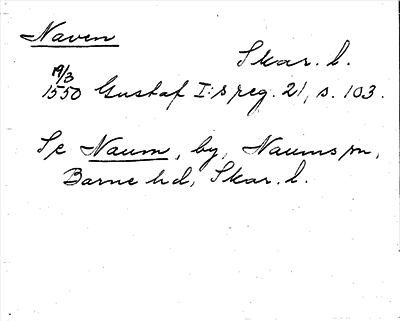 Naven
Skar. l.
19/3
1550 Gustaf I:s reg. 21, s. 103.
Se Naum, by, Naums sn,
Barne hd, Skar. l.